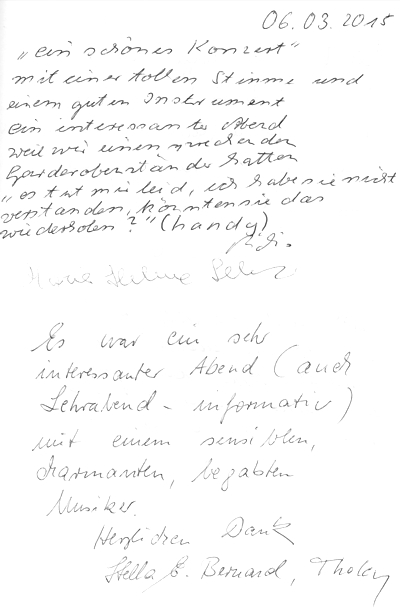 06.03.2015
„ein schönes Konzert"
mit einer tollen Stimme und
einem guten Instrument
ein interessanter Abend
weil wir einen sprechenden
Garderobenständer hatten
„es tut mir leid, ich habe sie nicht
verstanden, könnten sie das
wiederholen?" (handy)
Es war ein sehr
interessanter Abend (auch
Lehrabend - informativ)
mit einem sensiblen,
charmanten, begabten
Musiker.
Herzlichen Dank
Stella & Bernard, Tholey